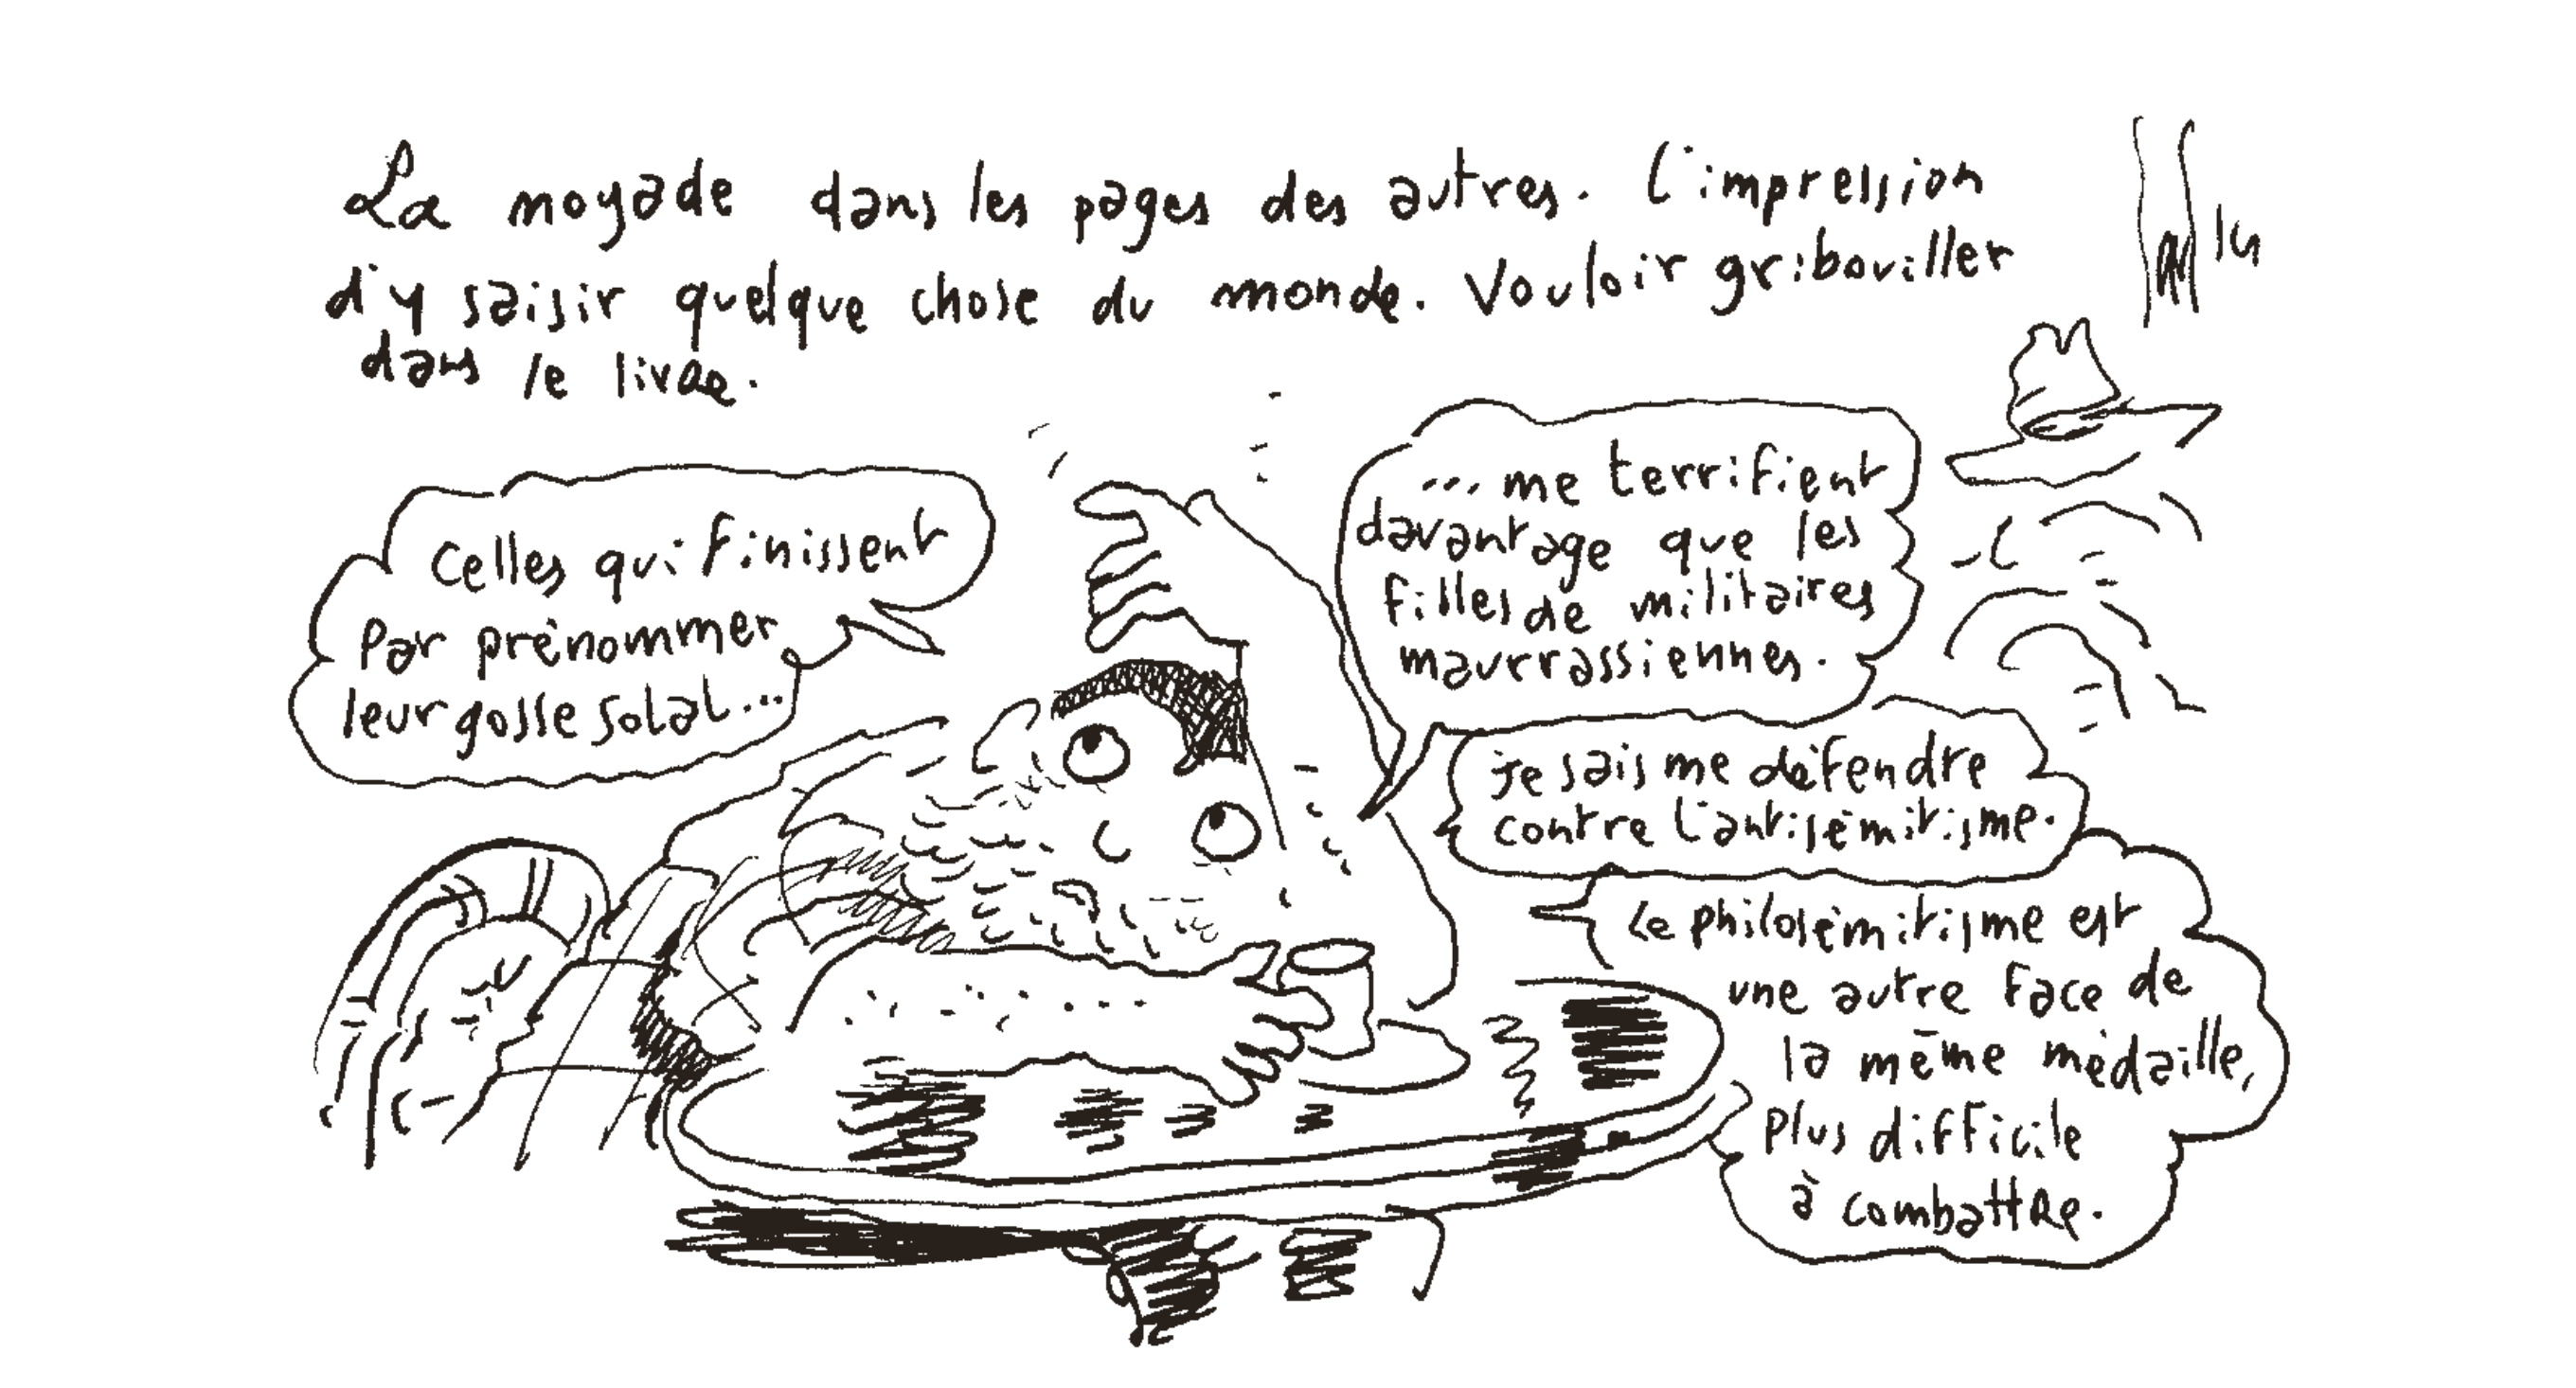 La noyade dans les pages des autres. L'impression
d'y saisir quelque chose du monde. Vouloir gribouiller
dans le livre.
Celles qui finissent
par prénommer
leur gosse Solal...
... me terrifient
davantage que les
filles de militaires
maurrassiennes.
je sais me défendre
contre l'antisémitisme.
Le philosémitisme est
une autre face de
la même médaille,
plus difficile
à combattre.